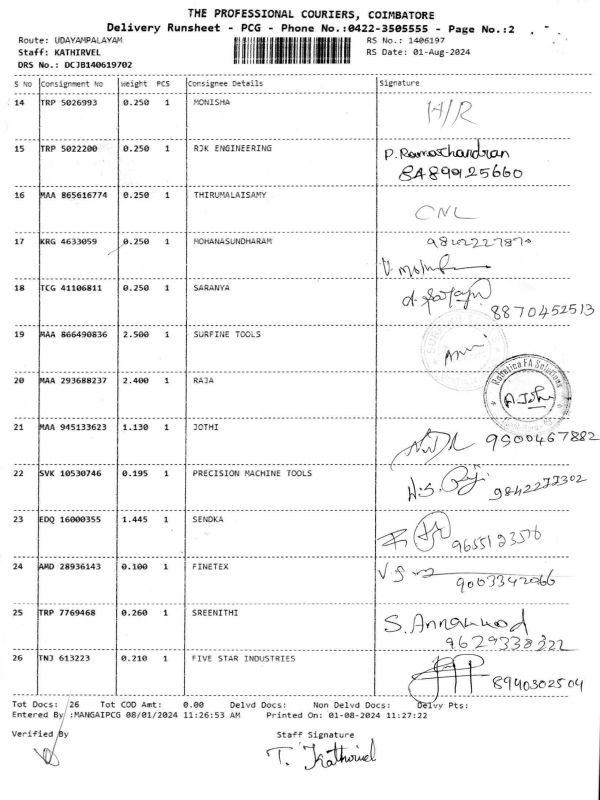 THE PROFESSIONAL COURIERS, COIMBATORE
Delivery Runsheet - PCG - Phone No.:0422-3505555 - Page No.:2
Route: UDAYAMPALAYAM RS No.: 1406197
Staff: KATHIRVEL RS Date: 01-Aug-2024
DRS No.: DCJB140619702
S No Consignment No Weight PCS Consignee Details Signature
14 TRP 5026993 0.250 1 MONISHA H/R
15 TRP 5022200 0.250 1 RJK ENGINEERING P. Ramachandran
8489125660
16 MAA 865616774 0.250 1 THIRUMALAISAMY CNL
17 KRG 4633059 0.250 1 MOHANASUNDHARAM
18 TCG 41106811 0.250 1 SARANYA
8870452513
19 MAA 866490836 2.500 1 SURFINE TOOLS
20 MAA 293688237 2.400 1 RAJA Robotica FA Solutions
A. Jothi
21 MAA 945133623 1.130 1 JOTHI 9500467882
22 SVK 10530746 0.195 1 PRECISION MACHINE TOOLS
9842277302
23 EDQ 16000355 1.445 1 SENDKA
9655123576
24 AMD 28936143 0.100 1 FINETEX
9003342066
25 TRP 7769468 0.260 1 SREENITHI S.
9629338322
26 TNJ 613223 0.210 1 FIVE STAR INDUSTRIES
8940302504
Tot Docs: 26 Tot COD Amt: 0.00 Delvd Docs: Non Delvd Docs: Delvy Pts:
Entered By :MANGAIPCG 08/01/2024 11:26:53 AM Printed On: 01-08-2024 11:27:22
Verified By Staff Signature
T. Kathirvel